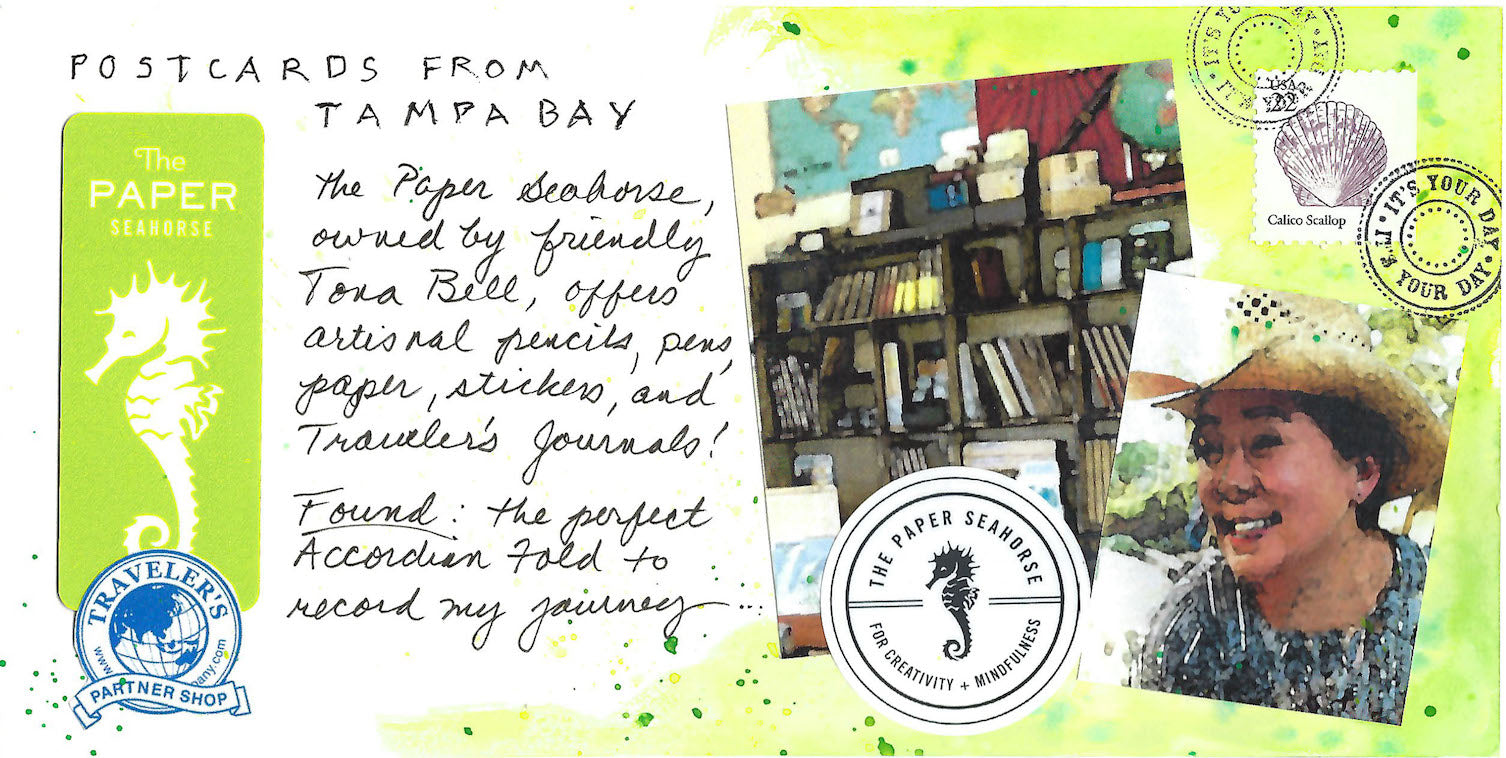 POSTCARDS FROM
TAMPA BAY
The
PAPER
SEAHORSE
the Paper Seahorse,
owned by friendly
Tona Bell, offers
artisnal pencils, pens,
paper, stickers, and
Traveler's Journals!
Found: the perfect
Accordian Fold to
record my journey...
TRAVELER'S
www.
pany.com
PARTNER SHOP
THE PAPER SEAHORSE
FOR CREATIVITY + MINDFULNESS
IT'S YOUR DAY • IT'S YOUR DAY •
USA
22
Calico Scallop
IT'S YOUR DAY • IT'S YOUR DAY •